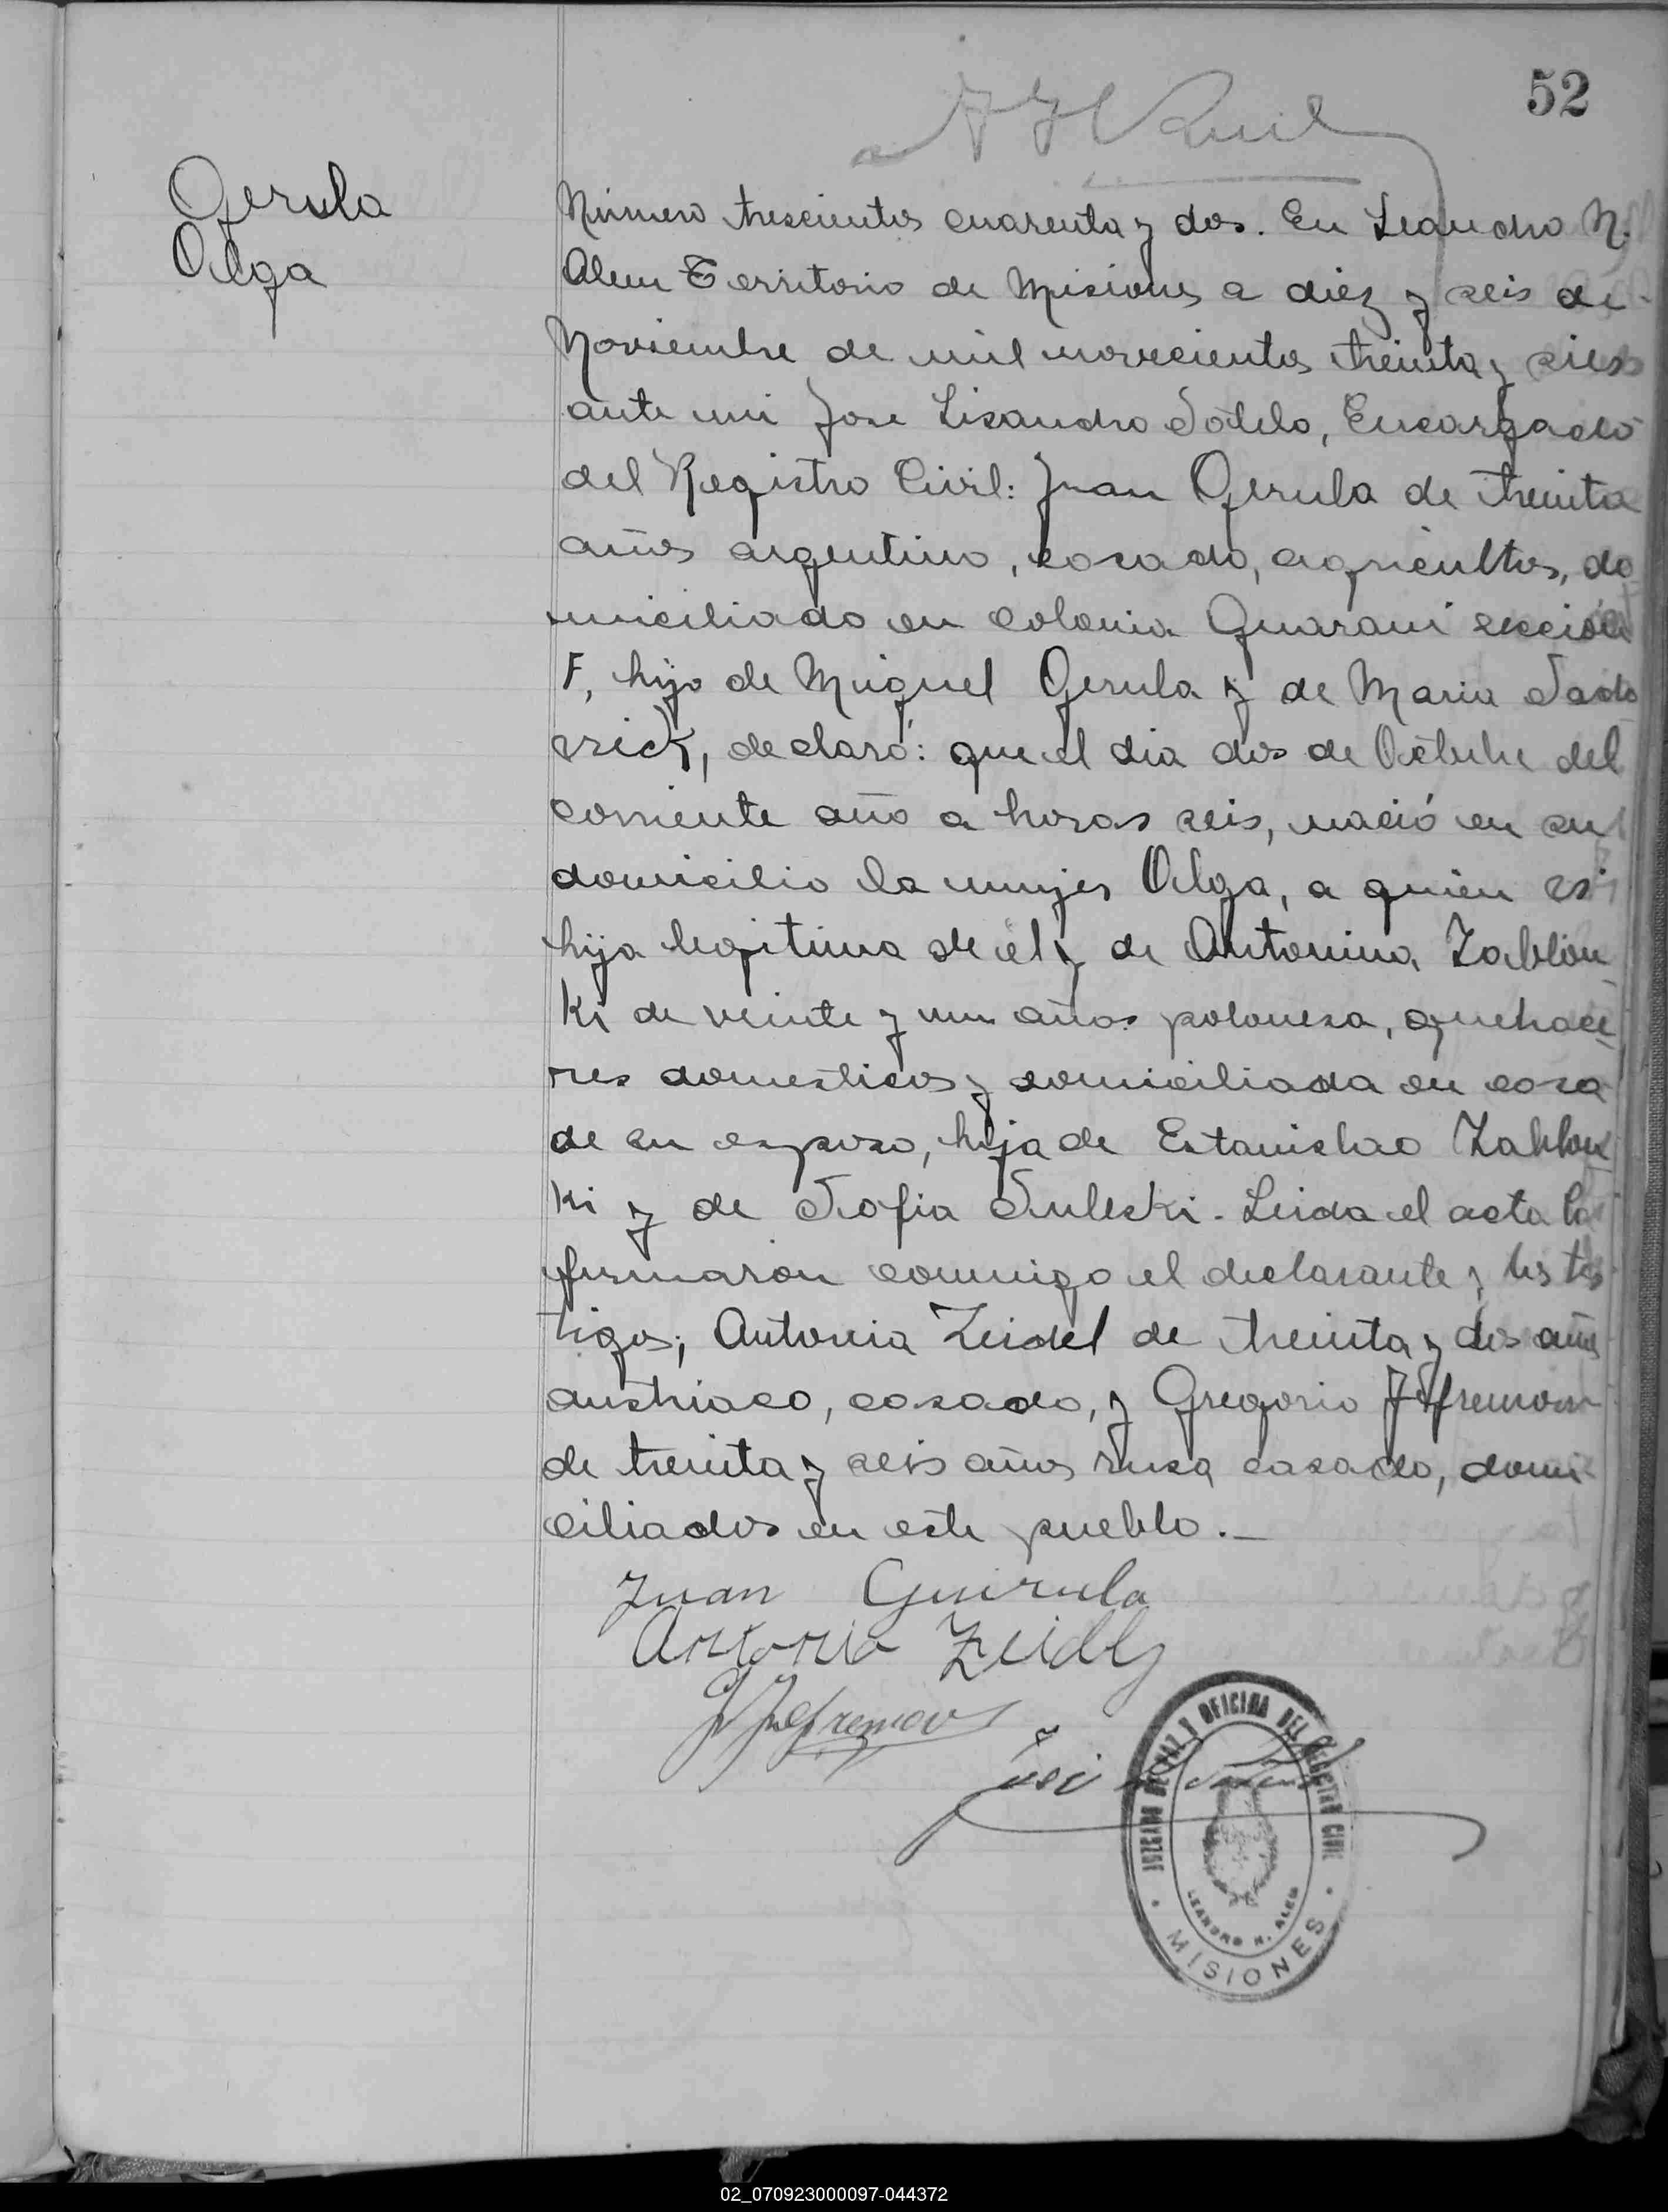 52
Gerula
Olga
Número trescientos cuarenta y dos. En Leandro N.
Alem Territorio de Misiones a diez y seis de
Noviembre de mil novecientos treinta y seis
ante mi Jose Lisandro Sotelo, Encargado
del Registro Civil: Juan Gerula de treinta
años argentino, casado, agricultor, do
miciliado en colonia Guarani sección
F, hijo de Miguel Gerula y de Maria Sado
vrick, declaró: que el dia dos de Octubre del
corriente año a horas seis, nació en su
domicilio la mujer Olga, a quien es
hija legitima de él y de Antonina Zablon
ki de veinte y un años polonesa, quehace
res domesticos y domiciliada en casa
de su esposo, hija de Estanislao Zablon
ki y de Sofia Suleski. Leida el acta la
firmaron conmigo el declarante y los tes
tigos; Antonio Zeidel de treinta y dos años
austriaco, casado, y Gregorio Jefremow
de treinta y seis años ruso casado, domi
ciliados en este pueblo.—
Juan Guirula
Antonio Zeidly
G Jefremow
JUZGADO DE PAZ Y OFICINA DEL REGISTRO CIVIL
LEANDRO N. ALEM
MISIONES
02_070923000097-044372